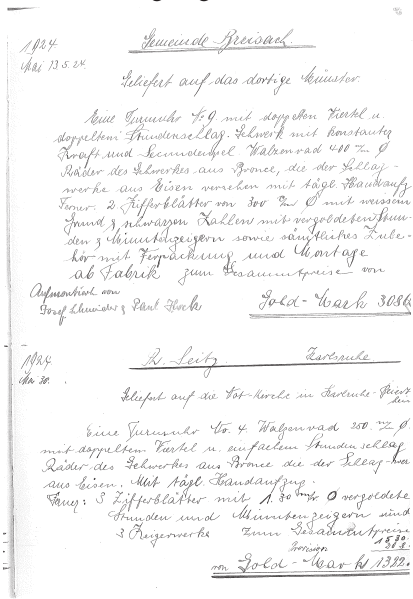 1924
Mai 13.5.24.
Gemeinde Breisach.
Geliefert auf das dortige Münster.
Eine Turmuhr No 9 mit doppelten Viertel u.
doppeltem Stundenschlag. Gehwerk mit konstanter
Kraft und Secundenpel. Walzenrad 400 m/m Ø
Räder des Gehwerkes aus Bronce, die der Schlag-
werke aus Eisen versehen mit tägl. Handaufz
Ferner: 2 Zifferblätter von 300 m/m Ø mit weissem
Grund & schwarzen Zahlen mit vergoldeten Stun-
den & Minutenzeigern sowie sämtliches Zube-
hör mit Verpackung und Montage
ab Fabrik zum Gesammtpreise von
Aufmontiert von
Josef Schneider &
Gold-Mark 3086
1924
Mai 30.
Seitz
Karlsruhe
Geliefert auf die Not-Kirche in Karlsruhe-
Eine Turmuhr No. 4. Walzenrad 250 m/m Ø
mit doppeltem Viertel u. einfachem Stundenschlag
Räder des Gehwerkes aus Bronce die der Schlag-
aus Eisen. Mit tägl. Handaufzug.
3 Zifferblätter mit 1.30 Ø vergoldete
Stunden und Minutenzeigern und
3 Zeigerwerke zum Gesamtpreise
Provision
von Gold-Mark 1322.